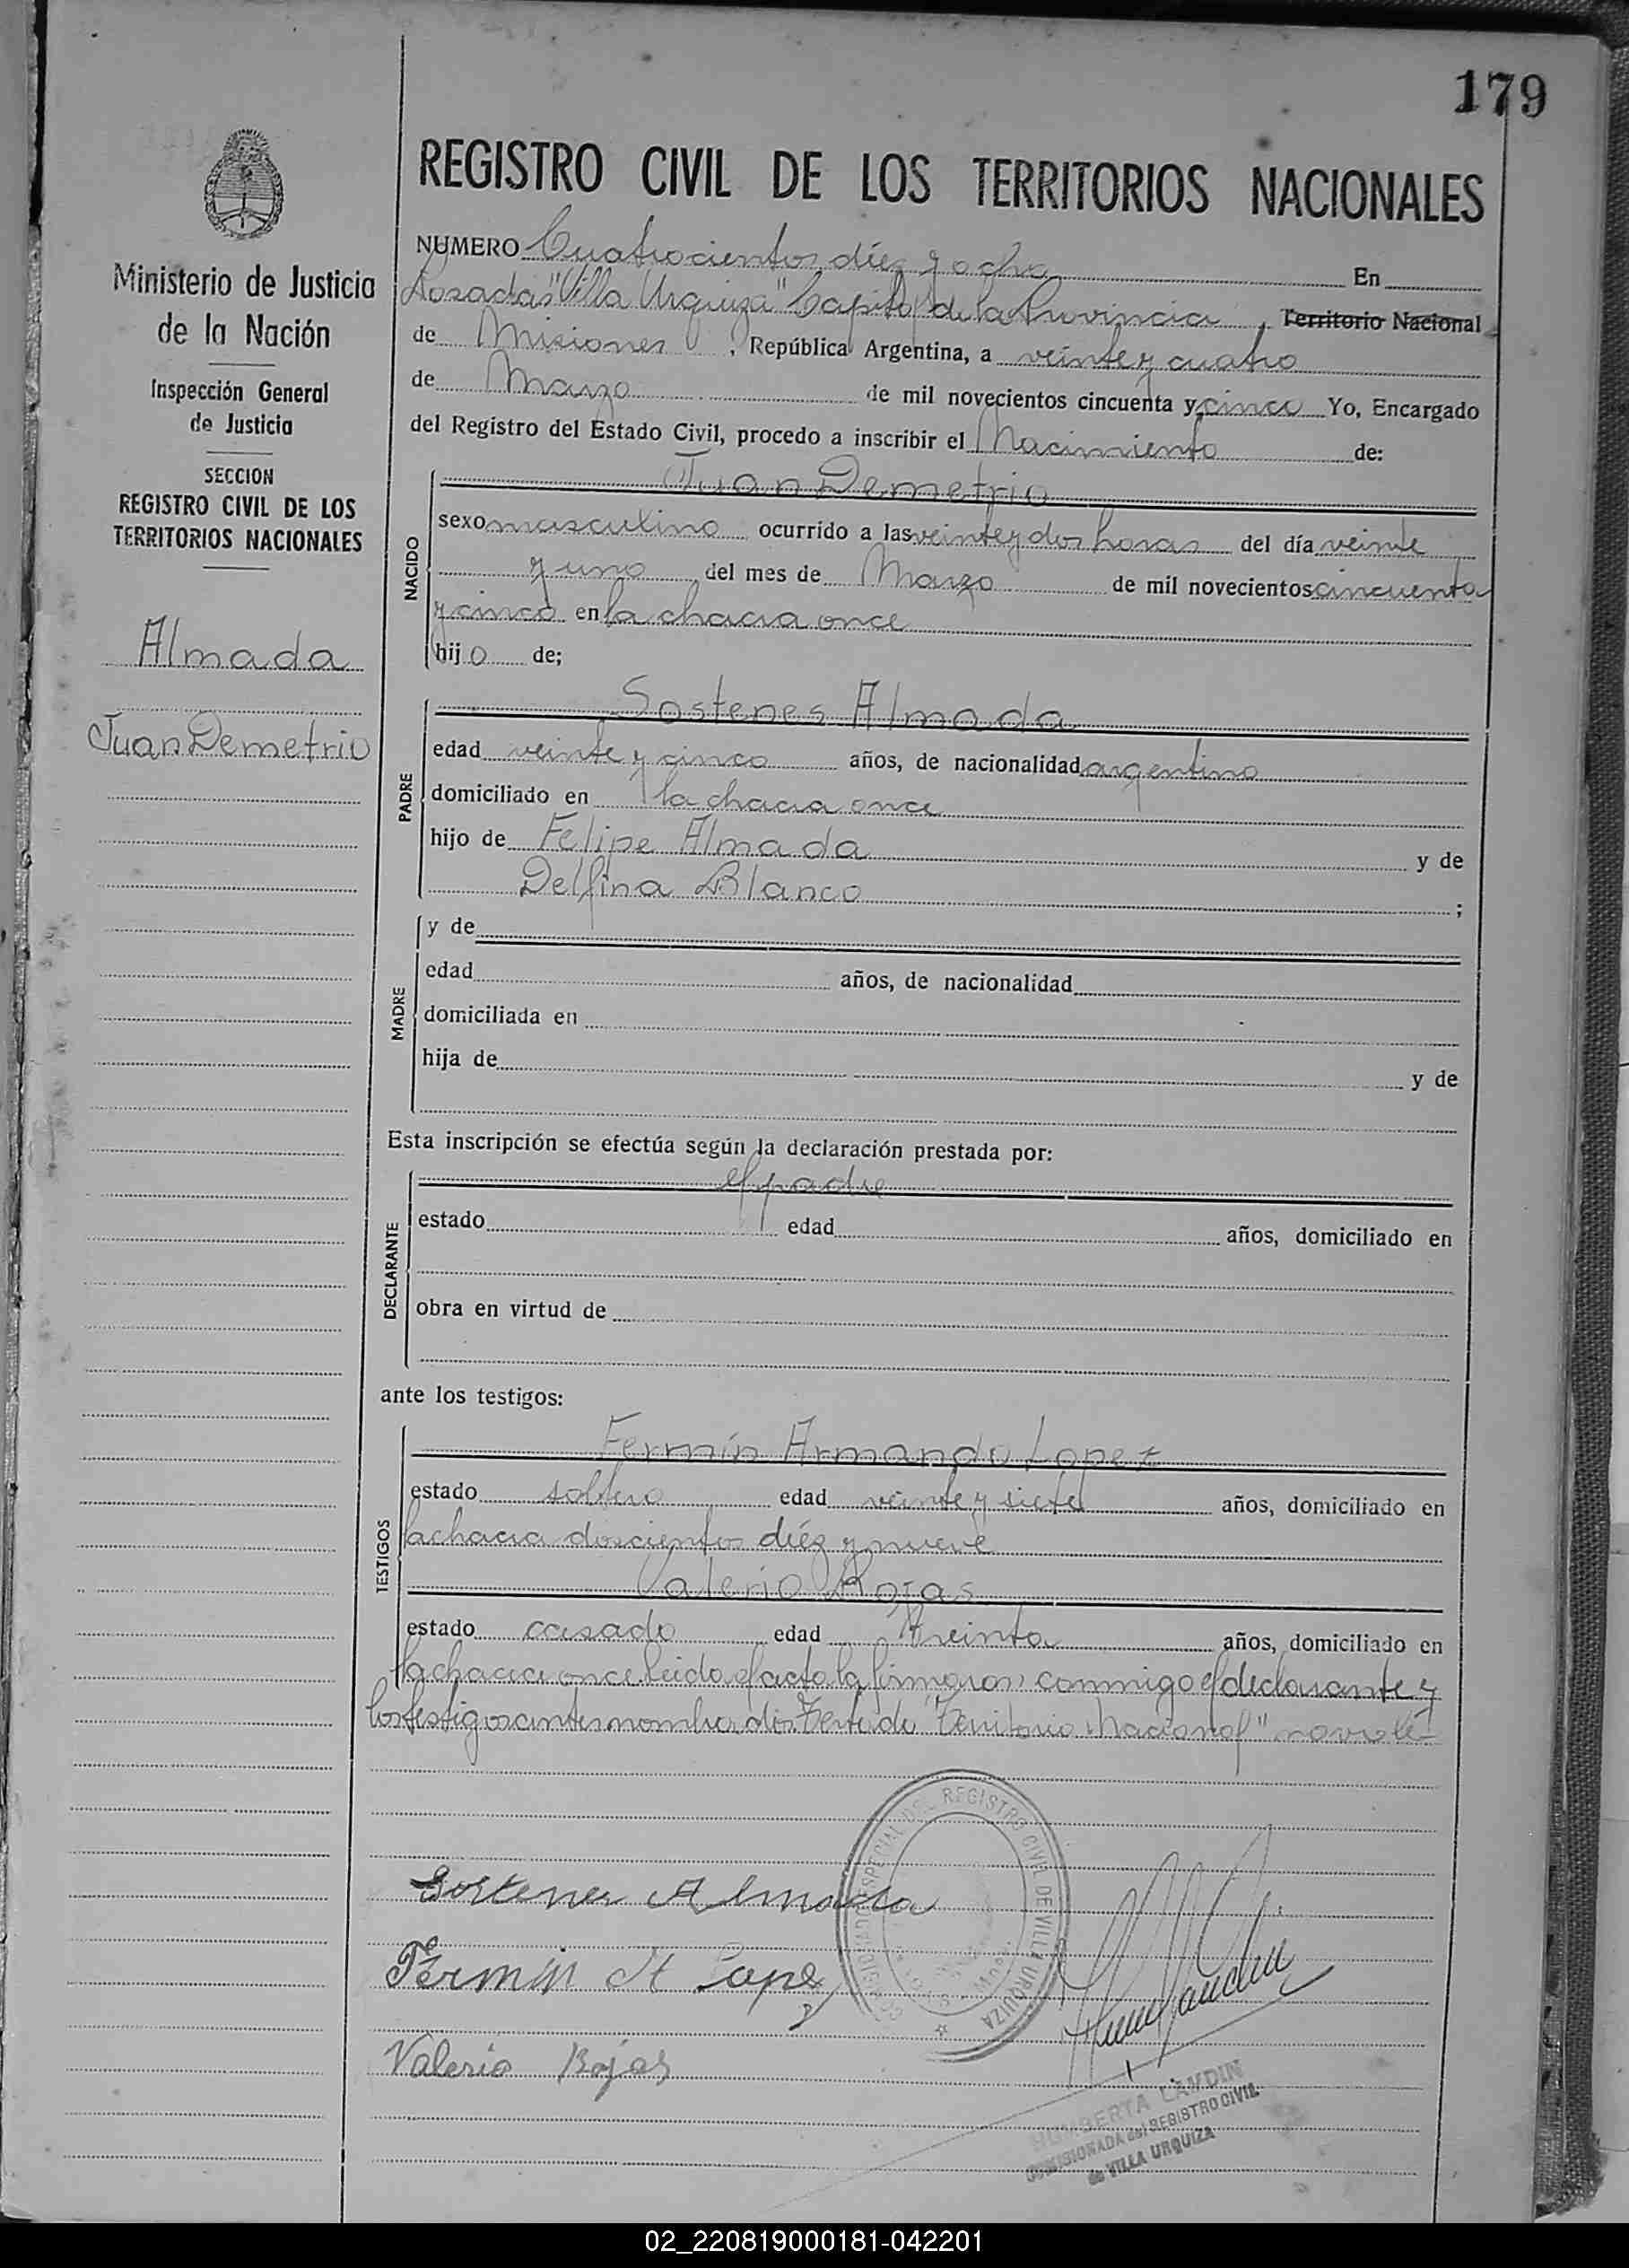 179
REGISTRO CIVIL DE LOS TERRITORIOS NACIONALES
Ministerio de Justicia
de la Nación
Inspección General
de Justicia
SECCION
REGISTRO CIVIL DE LOS
TERRITORIOS NACIONALES
Almada
Juan Demetrio
NUMERO Cuatrocientos diéz y ocho En
Posadas "Villa Urquiza" Capital de la Provincia, Territorio Nacional
de Misiones, República Argentina, a veinte y cuatro
de Marzo de mil novecientos cincuenta y cinco Yo, Encargado
del Registro del Estado Civil, procedo a inscribir el Nacimiento de:
NACIDO
Juan Demetrio
sexo masculino ocurrido a las veinte y dos horas del día veinte
y uno del mes de Marzo de mil novecientos cincuenta
y cinco en la chacra once
hijo de;
PADRE
Sostenes Almada
edad veinte y cinco años, de nacionalidad argentino
domiciliado en la chacra once
hijo de Felipe Almada y de
Delfina Blanco ;
MADRE
y de
edad años, de nacionalidad
domiciliada en
hija de y de
Esta inscripción se efectúa según la declaración prestada por:
DECLARANTE
el padre
estado edad años, domiciliado en
obra en virtud de
ante los testigos:
TESTIGOS
Fermín Armando Lopez
estado soltero edad veinte y siete años, domiciliado en
la chacra doscientos diéz y nueve
Valerio Rojas
estado casado edad treinta años, domiciliado en
la chacra once leida el acta la firmaron conmigo el declarante y
los testigos antes nombrados Testado "Territorio Nacional" no vale
Sostenes Almada
Fermin A Lopez
Valerio Rojas
REGISTRO CIVIL DE VILLA URQUIZA
HUMBERTA LANDIN
COMISIONADA del REGISTRO CIVIL
de VILLA URQUIZA
02_220819000181-042201